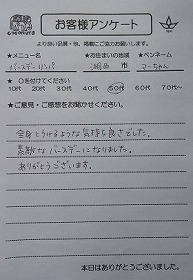 お客様アンケート
より良い品質・他、掲載にご協力お願いします。
★メニュー名 ★お住まいの地域 ★ペンネーム
バースデーリンパ 湖西 市 マーちゃん
★ ○を付けてください
10代 20代 30代 40代 50代 60代 70代～
★ご意見・ご感想をお聞かせください。
全身とろけるような気持ち良さでした。
素敵なバースデーになりました。
ありがとうございます。
本日はありがとうございました。